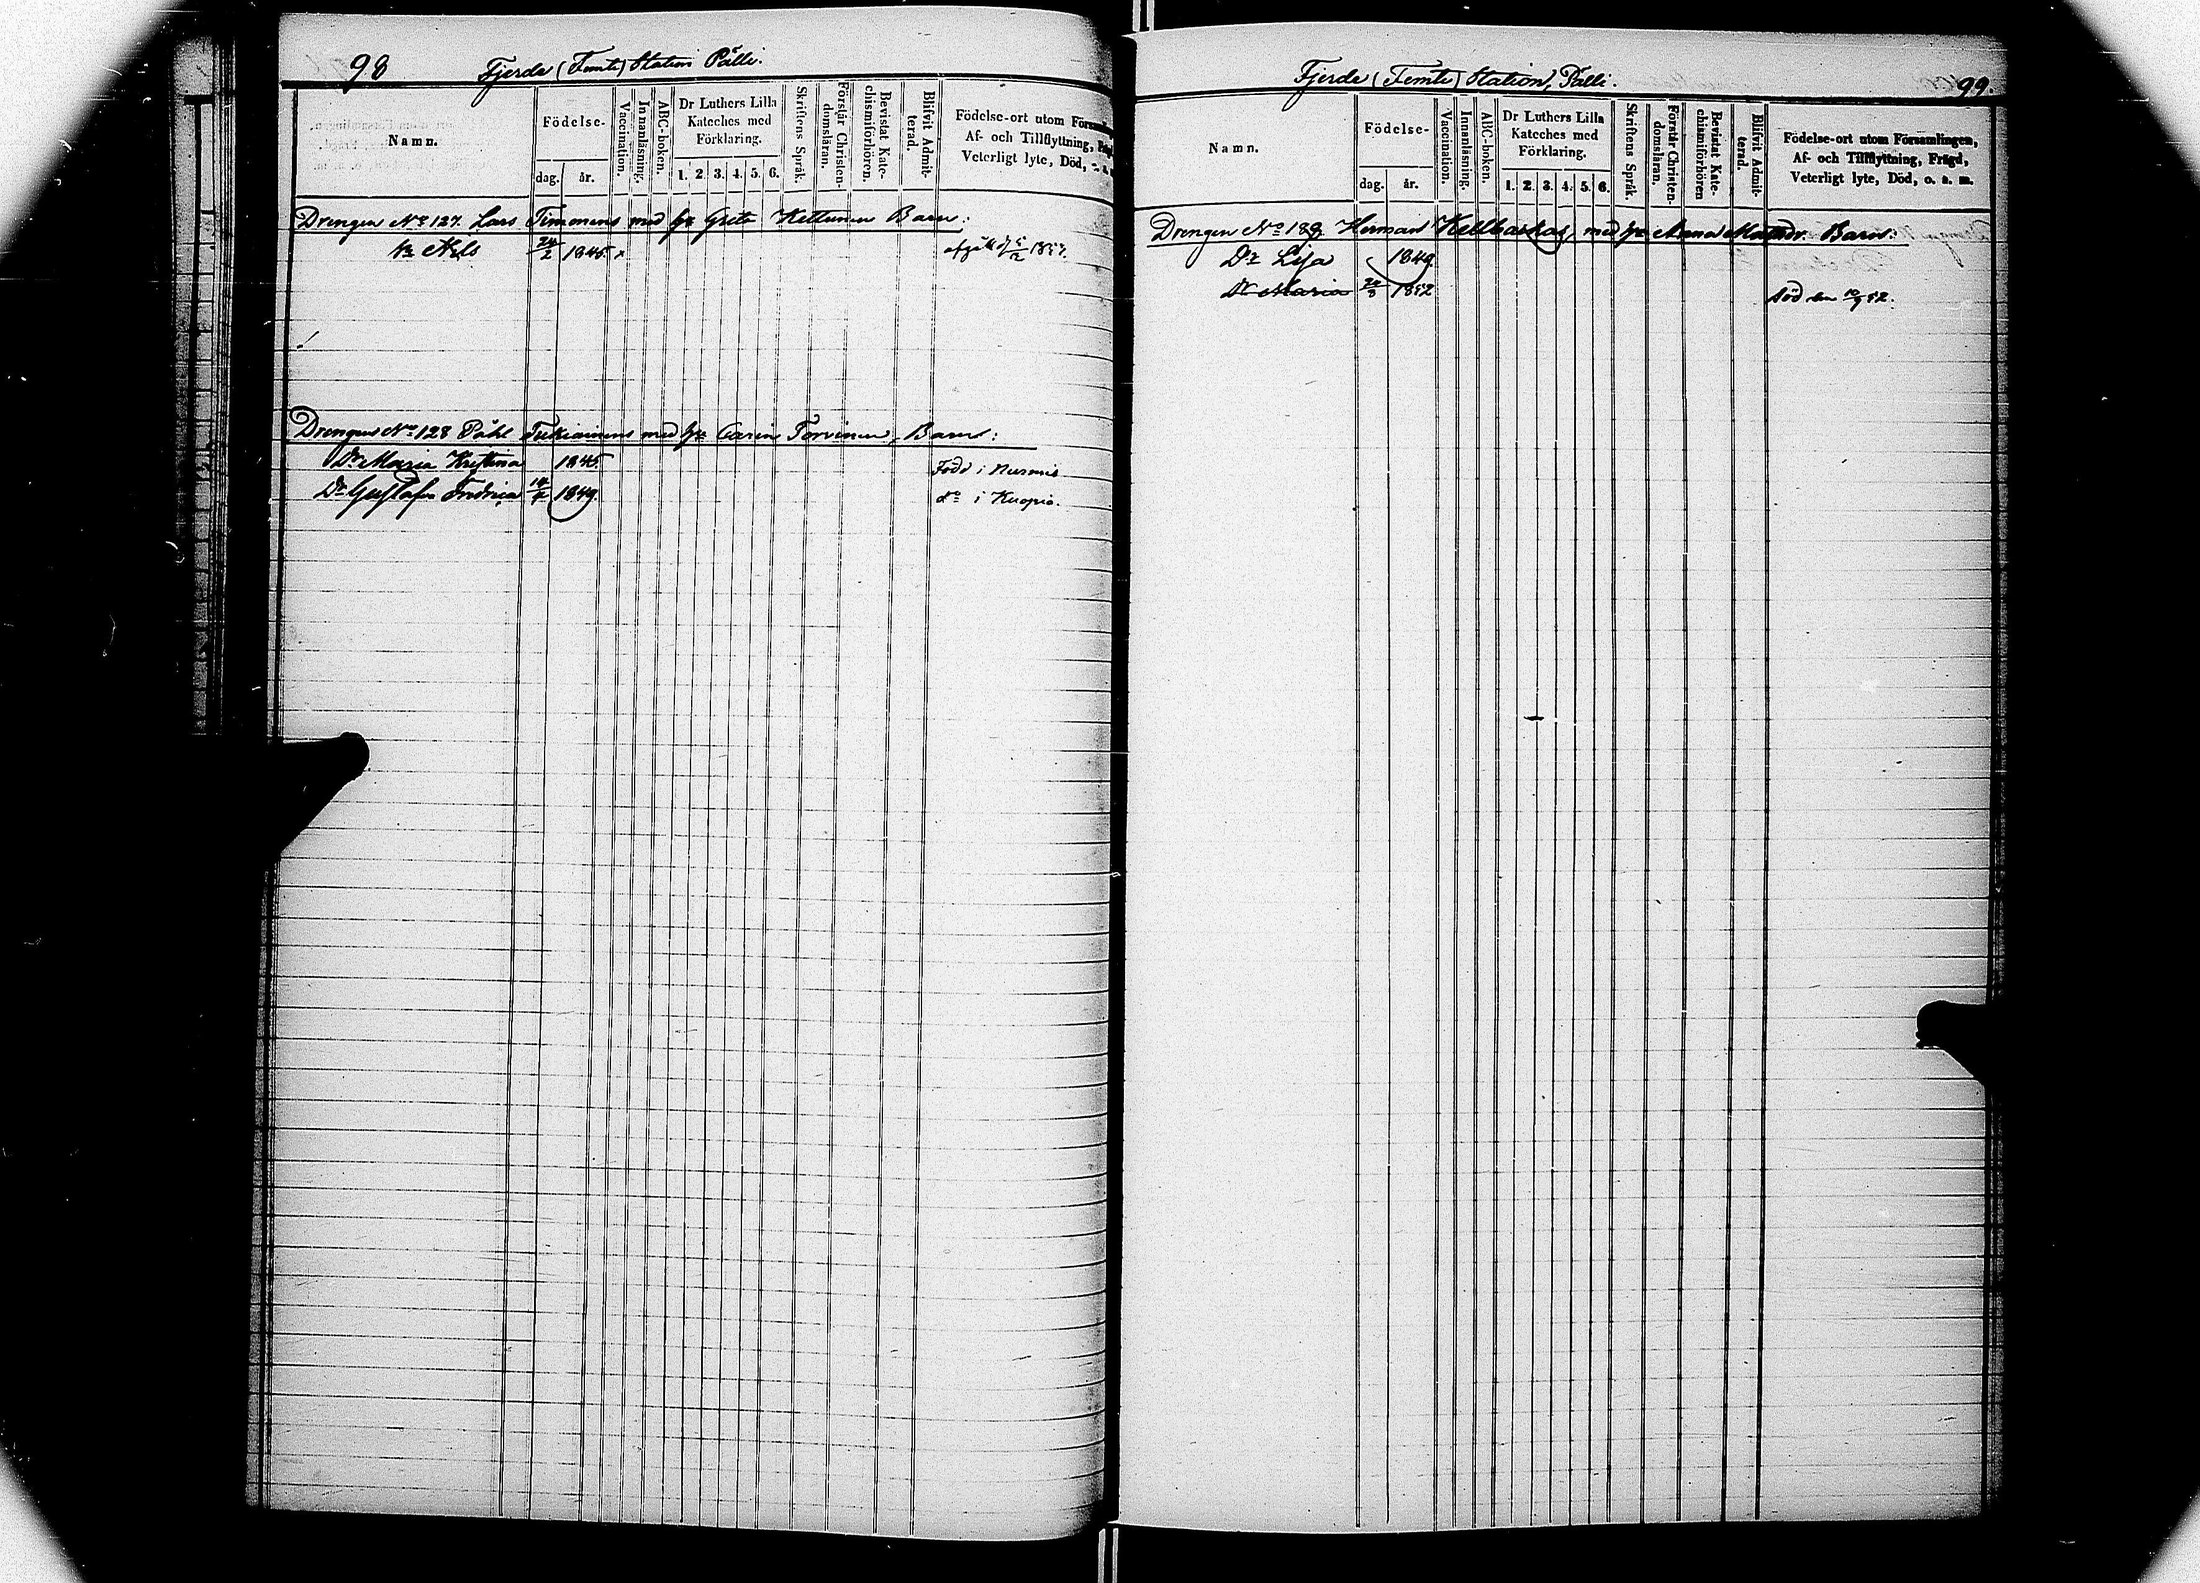 98 Fjerde (Femte) Station Pälli.
Namn.
Födelse-
dag. år.
Vaccination.
Innanläsning.
ABC-boken.
Dr Luthers Lilla
Kateches med
Förklaring.
1. 2. 3. 4. 5. 6.
Skriftens Språk.
Förstår Christen-
domsläran.
Bevistat Kate-
chismiförhören.
Blifvit Admit-
terad.
Födelse-ort utom Försam
Af- och Tillflyttning,
Veterligt lyte, Död,
Drengen No 127. Lars Timonens med h: Greta Kettunen Barn:
Sn Nils 24/2 1845
1857.
Drengens No 128 Påhl med h: Carin Torvinen Barn:
Dr Maria Kristina 1845 Född i Nurmis
Dr Gustafva Fredrica 1849 do i Kuopio.
Fjerde (Femte) Station, Pälli. 99.
Namn.
Födelse-
dag. år.
Vaccination.
Innanläsning.
ABC-boken.
Dr Luthers Lilla
Kateches med
Förklaring.
1. 2. 3. 4. 5. 6.
Skriftens Språk.
Förstår Christen-
domsläran.
Bevistat Kate-
chismiförhören
Blifvit Admit-
terad.
Födelse-ort utom Församlingen,
Af- och Tillflyttning, Frägd,
Veterligt lyte, Död, o. s. m.
Drengen No Herman med h: Anna Barn:
Dr Lisa 1849
Dr Maria 1852 död den 10/9 52.